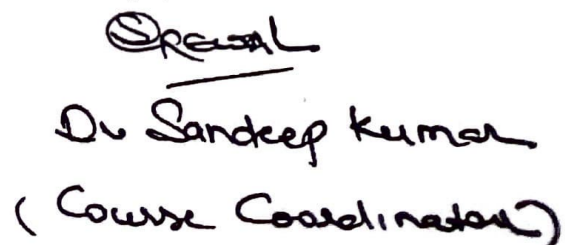 Dr Sandeep Kumar
(Course Coordinator)